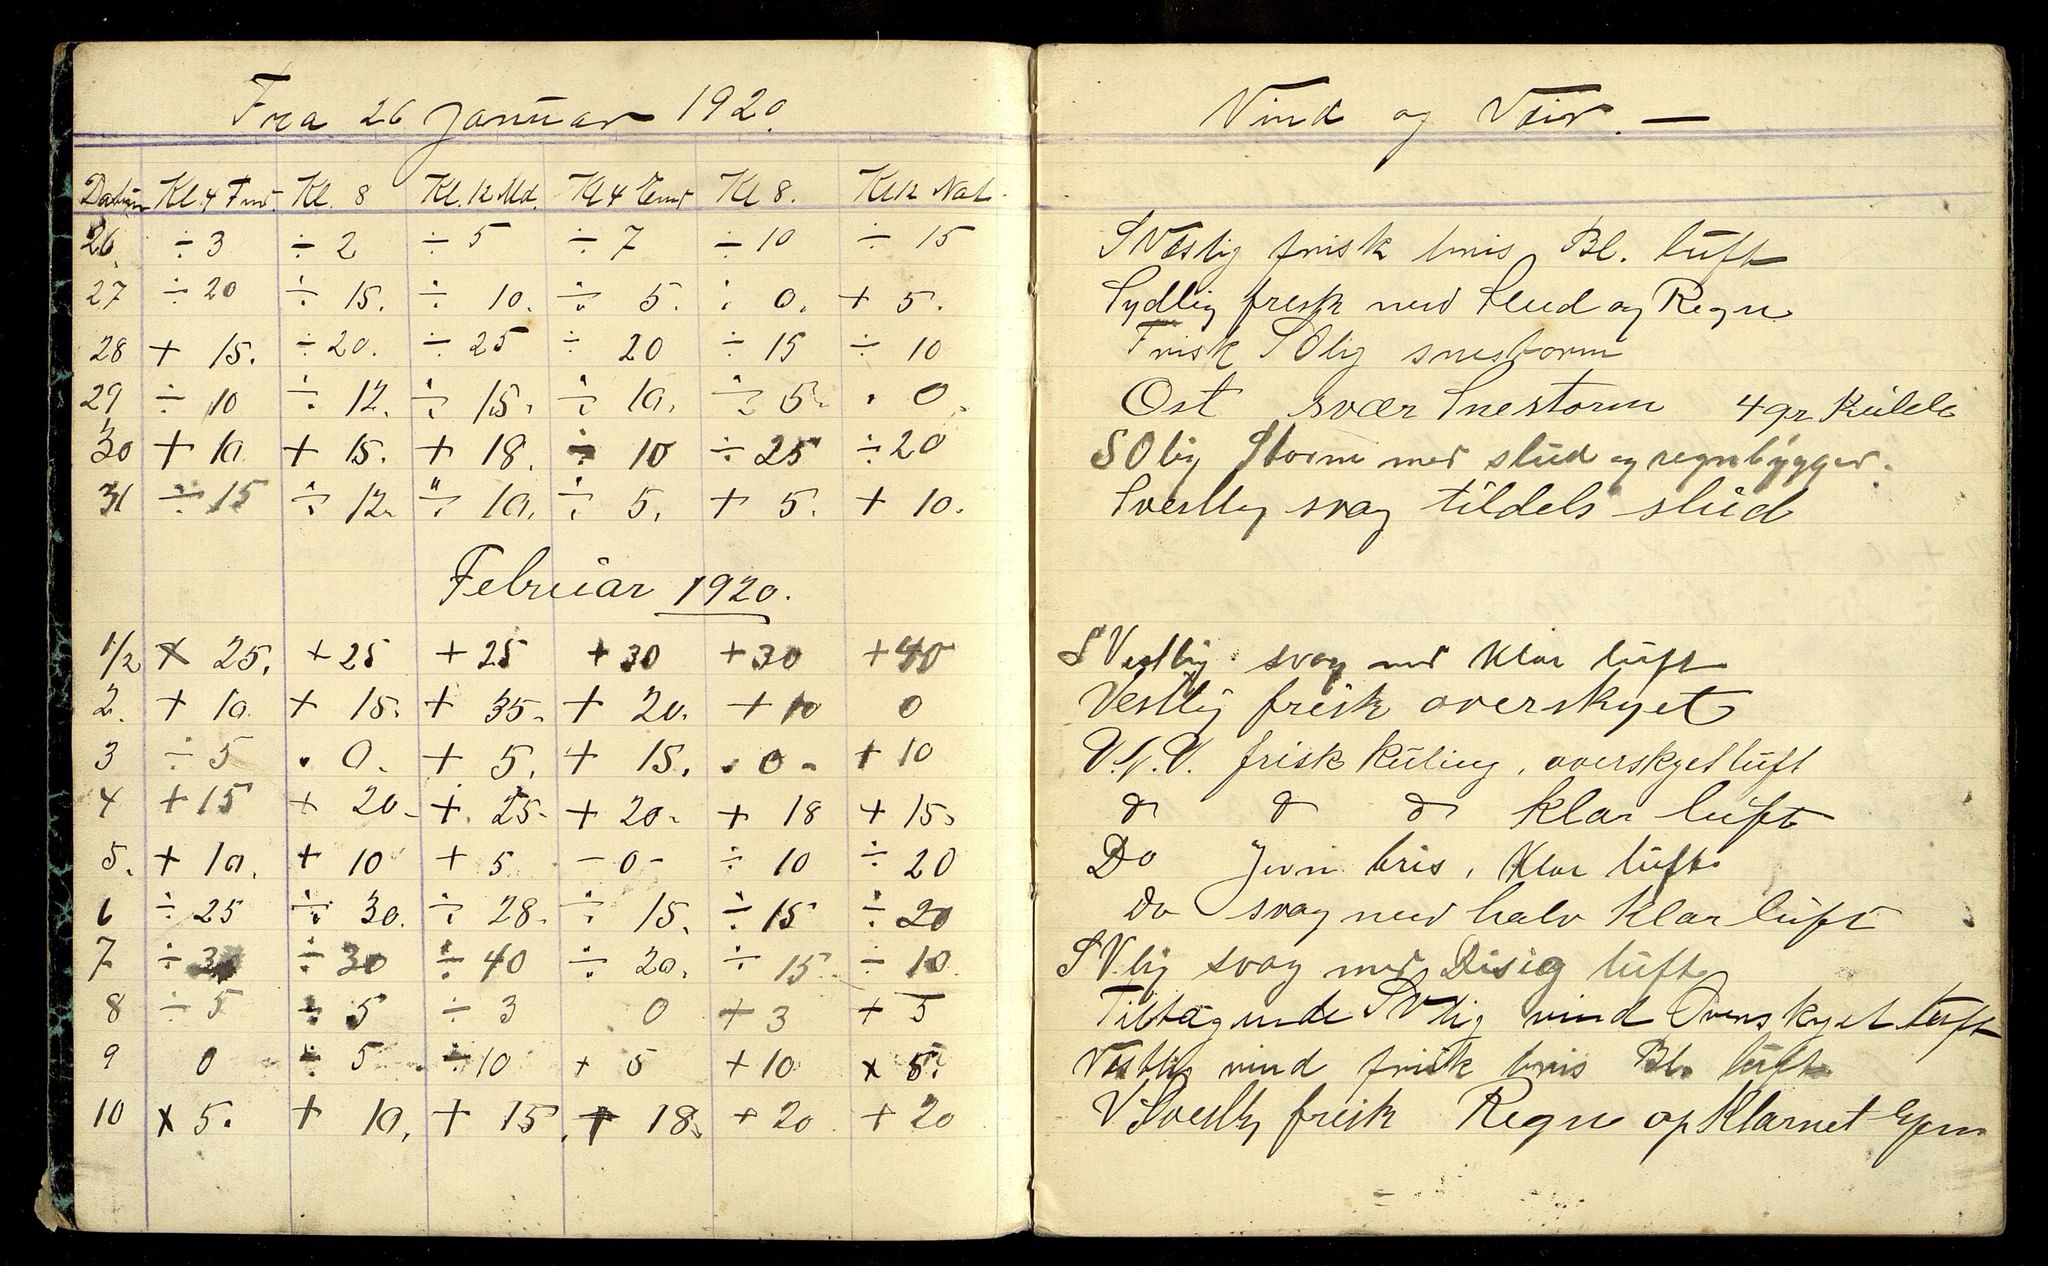 Fra 26 Januar 1920.
Datum Kl. 4 Fmd. Kl. 8 Kl. 12 Md. Kl 4 Emd Kl 8. Kl 12 Nat.
26. ÷ 3 ÷ 2 ÷ 5 ÷ 7 ÷ 10 ÷ 15
27 ÷ 20 ÷ 15. ÷ 10. ÷ 5. : 0. + 5.
28 + 15. ÷ 20. ÷ 25 ÷ 20 ÷ 15 ÷ 10
29 ÷ 10 ÷ 12. ÷ 15. ÷ 10. ÷ 5. . 0.
30 + 10. + 15. + 18. ÷ 10 ÷ 25 ÷ 20
31 ÷ 15 ÷ 12. ÷ 10. ÷ 5. + 5. + 10.
Februar 1920.
1/2 + 25. + 25 + 25 + 30 + 30 + 40
2. + 10. + 15. + 35. + 20. + 10 0
3 ÷ 5 . 0. + 5. + 15. . 0 - + 10
4 + 15 + 20 - + 25 - + 20 - + 18 + 15
5. + 10. + 10 + 5 - 0 - ÷ 10 ÷ 20
6 ÷ 25 ÷ 30. ÷ 28. ÷ 15. ÷ 15 ÷ 20
7 ÷ ÷ 30 ÷ 40 ÷ 20. ÷ 15 ÷ 10
8 ÷ 5 ÷ 5 ÷ 3 0 + 3 + 5
9 0 ÷ 5 ÷ 10 + 5 + 10 + 5.
10 + 5. + 10. + 15. + 18. + 20 + 20
Vind og Veir. —
S Vestlig frisk bris Bl. luft
Sydlig fresk med Slud og Regn
Frisk S Olig snestorm
Ost svær Snestorm 4 gr Kulde
S Olig Storm med slud og regnbygger.
Svestlig svag tildels slud
S Vestlig svag med Klar luft
Vestlig frisk overskyet
V.S.V. frisk Kuling, overskyet luft
do do do klar luft
Do Jevn bris, Klar luft
Do svag med halv klar luft
S Vlig svag med Disig luft
Tiltagende S Vlig vind Overskyet luft
Vestlig vind frisk bris Bl. luft
V Svestlig frisk Regn op Klarnet